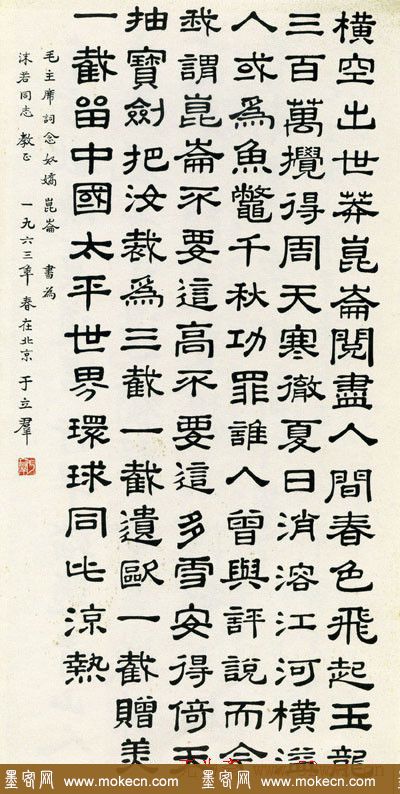 橫空出世莽崑崙閱盡人間春色飛起玉龍
三百萬攪得周天寒徹夏日消溶江河橫溢
人或為魚鼈千秋功罪誰人曾與評說而今
我謂崑崙不要這高不要這多雪安得倚天
抽寶劍把汝裁為三截一截遺歐一截贈美
一截留中國太平世界環球同此涼熱
毛主席詞念奴嬌崑崙 書為
沫若同志教正 一九六三年春在北京 于立羣
墨客网 www.mokecn.com 墨客网 www.mokecn.com